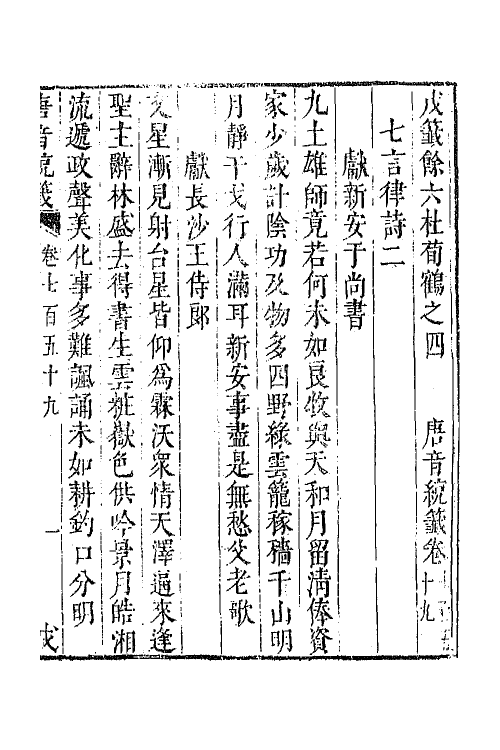 戊籖餘六杜荀鶴之四　唐音統籖卷十九
七言律詩二
獻新安于尚書
九土雄師竟若何未如良牧與天和月留清俸資
家少歲計陰功及物多四野綠雲籠稼穡千山明
月靜干戈行人滿耳新安事盡是無愁父老歌
獻長沙王侍郎
文星漸見射台星皆仰為霖沃衆情天澤逼來逢
聖主辭林盛去得書生雲粧嶽色供吟景月皓湘
流遞政聲美化事多難諷誦未如耕釣口分明
唐音統籖　卷七百五十九　一　戊